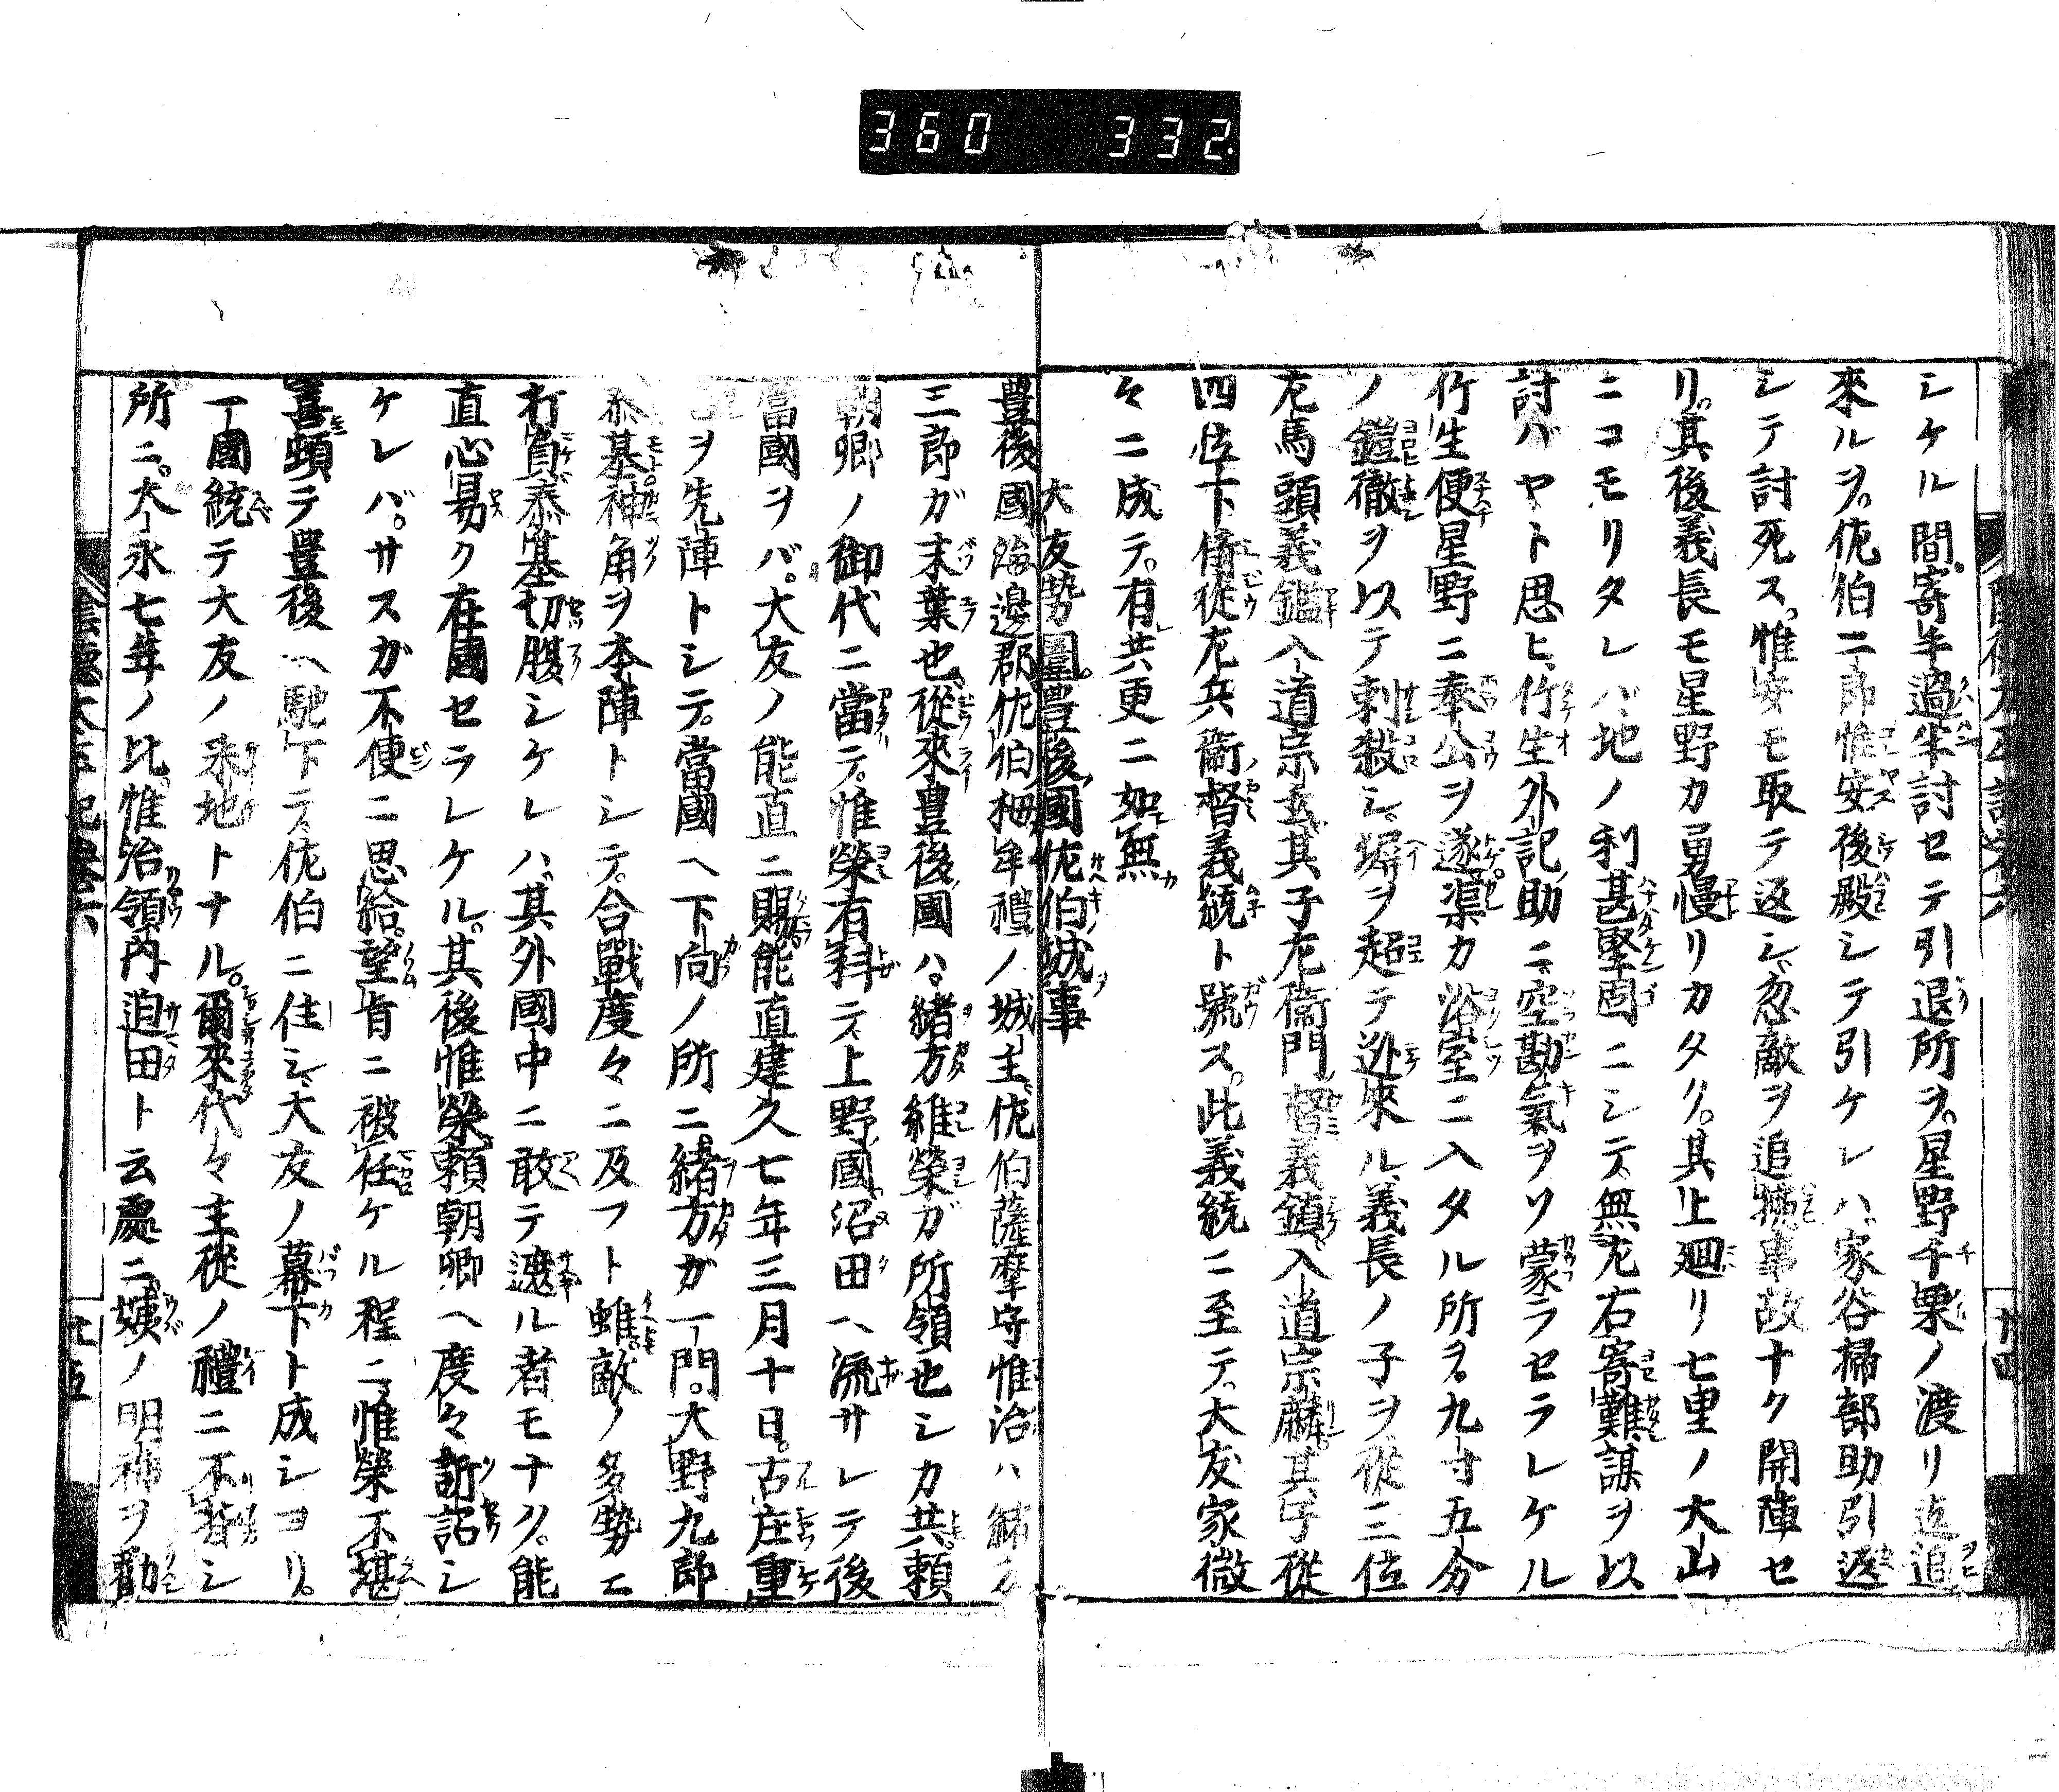 360 332
シケル間。寄手過半討セテ引退所ヲ。星野千栗ノ渡リ迄追
來ルヲ。佐伯二郎惟安後殿シテ引ケレハ。家谷掃部助引返
シテ討死ス。惟安モ取テ返シ。忽敵ヲ追拂事故ナク開陣セ
リ。其後義長モ星野カ勇慢リカタク。其上廻リ七里ノ大山
ニコモリタレバ。地ノ利甚堅固ニシテ。無左右寄難謀ヲ以
討バヤト思ヒ。竹生外記助ニ空勘氣ヲソ蒙ラセラレケル
竹生便星野ニ奉公ヲ遂。渠カ浴室ニ入タル所ヲ。九寸五分
ノ鎧徹ヲ以テ刺殺シ。塀ヲ超テ迯來ル。義長ノ子ヲ從三位
左馬頭義鑑入道宗玄。其子左衞門督義鎮。入道宗麟。其子從
四位下侍從左兵衞督義統ト號ス。此義統ニ至テ。大友家微
々ニ成テ。有共更ニ如無
大友勢圍豊後國佐伯城事
豊後國海邊郡佐伯栂牟禮ノ城主。佐伯薩摩守惟治ハ緒方
三郎ガ末葉也。從來豊後國ハ。緒方維榮ガ所領也シカ共。頼
朝卿ノ御代ニ當テ。惟榮有科テ。上野國沼田ヘ流サレテ後
當國ヲバ。大友ノ能直ニ賜。能直建久七年三月十日。古庄重
ヲ先陣トシテ。當國ヘ下向ノ所ニ。緒方ガ一門。大野九郎
泰基神角ヲ本陣トシテ。合戰度々ニ及フト雖。敵ノ多勢ニ
打負。泰基切腹シケレハ。其外國中ニ敢テ遮ル者モナク。能
直心易ク在國セラレケル。其後惟榮頼朝卿ヘ度々訴詔シ
ケレバ。サスガ不便ニ思給。望旨ニ被任ケル程ニ。惟榮不堪
喜頓テ豊後ヘ馳下テ。佐伯ニ住シ。大友ノ幕下ト成シヨリ。
一國統テ大友ノ釆地トナル。爾來代々主從ノ禮ニ不背シ
所ニ。大永七年ノ比。惟治領内迫田ト云處ニ。姨ノ明神ヲ勸